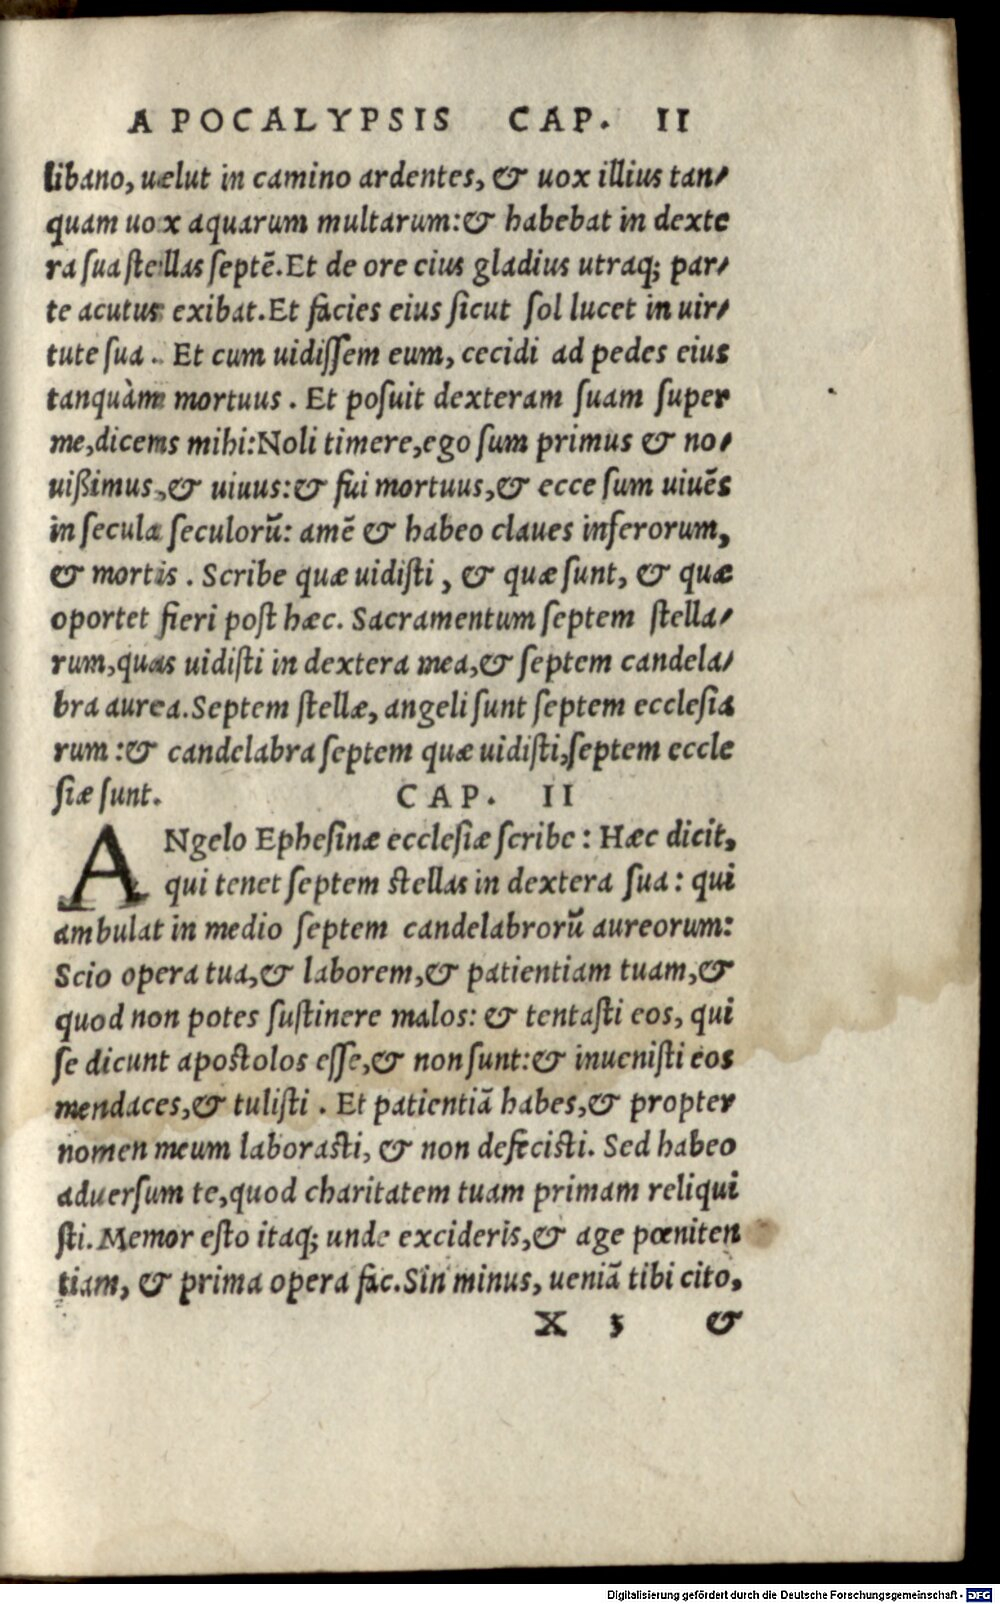 APOCALYPSIS CAP. II
libano, uelut in camino ardentes, & uox illius tan-
quam uox aquarum multarum: & habebat in dexte
ra sua stellas septē. Et de ore eius gladius utraq; par-
te acutus exibat. Et facies eius sicut sol lucet in uir-
tute sua. Et cum uidissem eum, cecidi ad pedes eius
tanquàm mortuus. Et posuit dexteram suam super
me, dicens mihi: Noli timere, ego sum primus & no-
uißimus, & uiuus: & fui mortuus, & ecce sum uiuēs
in secula seculorū: amē & habeo claues inferorum,
& mortis. Scribe quæ uidisti, & quæ sunt, & quæ
oportet fieri post hæc. Sacramentum septem stella-
rum, quas uidisti in dextera mea, & septem candela-
bra aurea. Septem stellæ, angeli sunt septem ecclesia
rum: & candelabra septem quæ uidisti, septem eccle
siæ sunt. CAP. II
ANgelo Ephesinæ ecclesiæ scribe: Hæc dicit,
qui tenet septem stellas in dextera sua: qui
ambulat in medio septem candelabrorū aureorum:
Scio opera tua, & laborem, & patientiam tuam, &
quod non potes sustinere malos: & tentasti eos, qui
se dicunt apostolos esse, & non sunt: & inuenisti eos
mendaces, & tulisti. Et patientiā habes, & propter
nomen meum laborasti, & non defecisti. Sed habeo
aduersum te, quod charitatem tuam primam reliqui
sti. Memor esto itaq; unde excideris, & age pœniten
tiam, & prima opera fac. Sin minus, ueniā tibi cito,
X 5 &
Digitalisierung gefördert durch die Deutsche Forschungsgemeinschaft - DFG